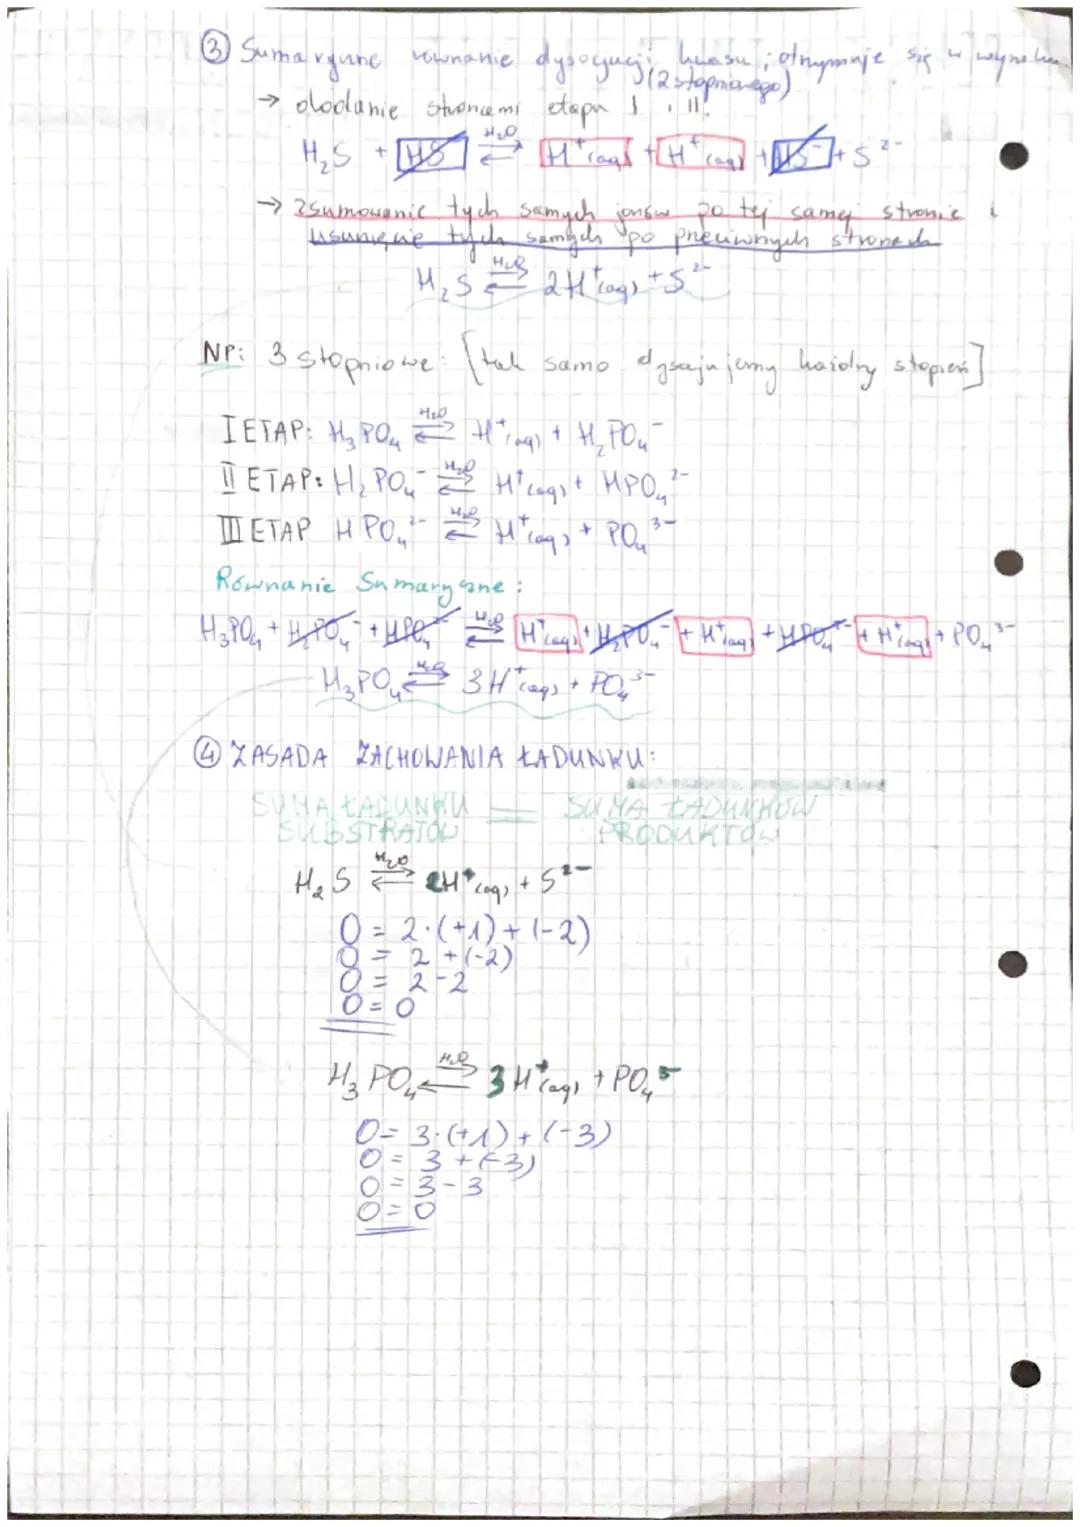 ③ Sumaryczne równanie dysocjacji kwasu (2 stopniowego) otrzymuje się w wyniku
→ dodanie stronami etapu I i II.
H₂S + HS⁻ ⇌ (H₂O) H⁺(aq) + H⁺(aq) + HS⁻ + S²⁻
→ zsumowanie tych samych jonów po tej samej stronie i
usunięcie tych samych po przeciwnych stronach
H₂S ⇌ (H₂O) 2H⁺(aq) + S²⁻
NP: 3 stopniowe: [tak samo dysocjujemy każdy stopień]
I ETAP: H₃PO₄ ⇌ (H₂O) H⁺(aq) + H₂PO₄⁻
II ETAP: H₂PO₄⁻ ⇌ (H₂O) H⁺(aq) + HPO₄²⁻
III ETAP HPO₄²⁻ ⇌ (H₂O) H⁺(aq) + PO₄³⁻
Równanie Sumaryczne:
H₃PO₄ + H₂PO₄⁻ + HPO₄²⁻ ⇌ (H₂O) H⁺(aq) + H₂PO₄⁻ + H⁺(aq) + HPO₄²⁻ + H⁺(aq) + PO₄³⁻
H₃PO₄ ⇌ (H₂O) 3H⁺(aq) + PO₄³⁻
④ ZASADA ZACHOWANIA ŁADUNKU:
SUMA ŁADUNKU = SUMA ŁADUNKÓW
SUBSTRATÓW PRODUKTÓW
H₂S ⇌ (H₂O) 2H⁺(aq) + S²⁻
0 = 2·(+1) + (-2)
0 = 2 + (-2)
0 = 2 - 2
0 = 0
H₃PO₄ ⇌ (H₂O) 3H⁺(aq) + PO₄³⁻
0 = 3·(+1) + (-3)
0 = 3 + (-3)
0 = 3 - 3
0 = 0